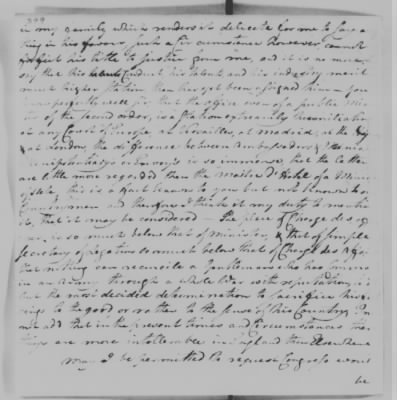 in my family which renders it delicate for me to say a
thing in his favour. Such a Circumstance however, cannot
forfeit his title to Justice from me, and it is no more
say that his Conduct his talents and his industry merit
much higher Station than has yet been assigned him — You
know perfectly well Sir, that the office even of a public Min
of the second order, is a Station extreamly
at any Court of Europe, at Versailles, at Madrid, at the Hague
at London, the difference between Ambassadors &
is so immense, that the latter
are little more regarded than the Maitre D'Hotel of a Minis
of State, this is a fact known to you but not known to o
Countrymen and therefore I think it my duty to mentio
it, that it may be considered — The place of Charge des af
is so much below that of Minister, & that of simple
Secretary of Legation so much below that of Charge des Affa
that nothing can reconcile a Gentleman who has served
in an Army through a whole War with reputation, is
but the most decided determination to sacrifice his
to the good or rather to the sense of his Country. Per
me add that in the present times and Circumstances the
things are more intollerable in England than Elsewhere
May I be permitted to request Congress would
be